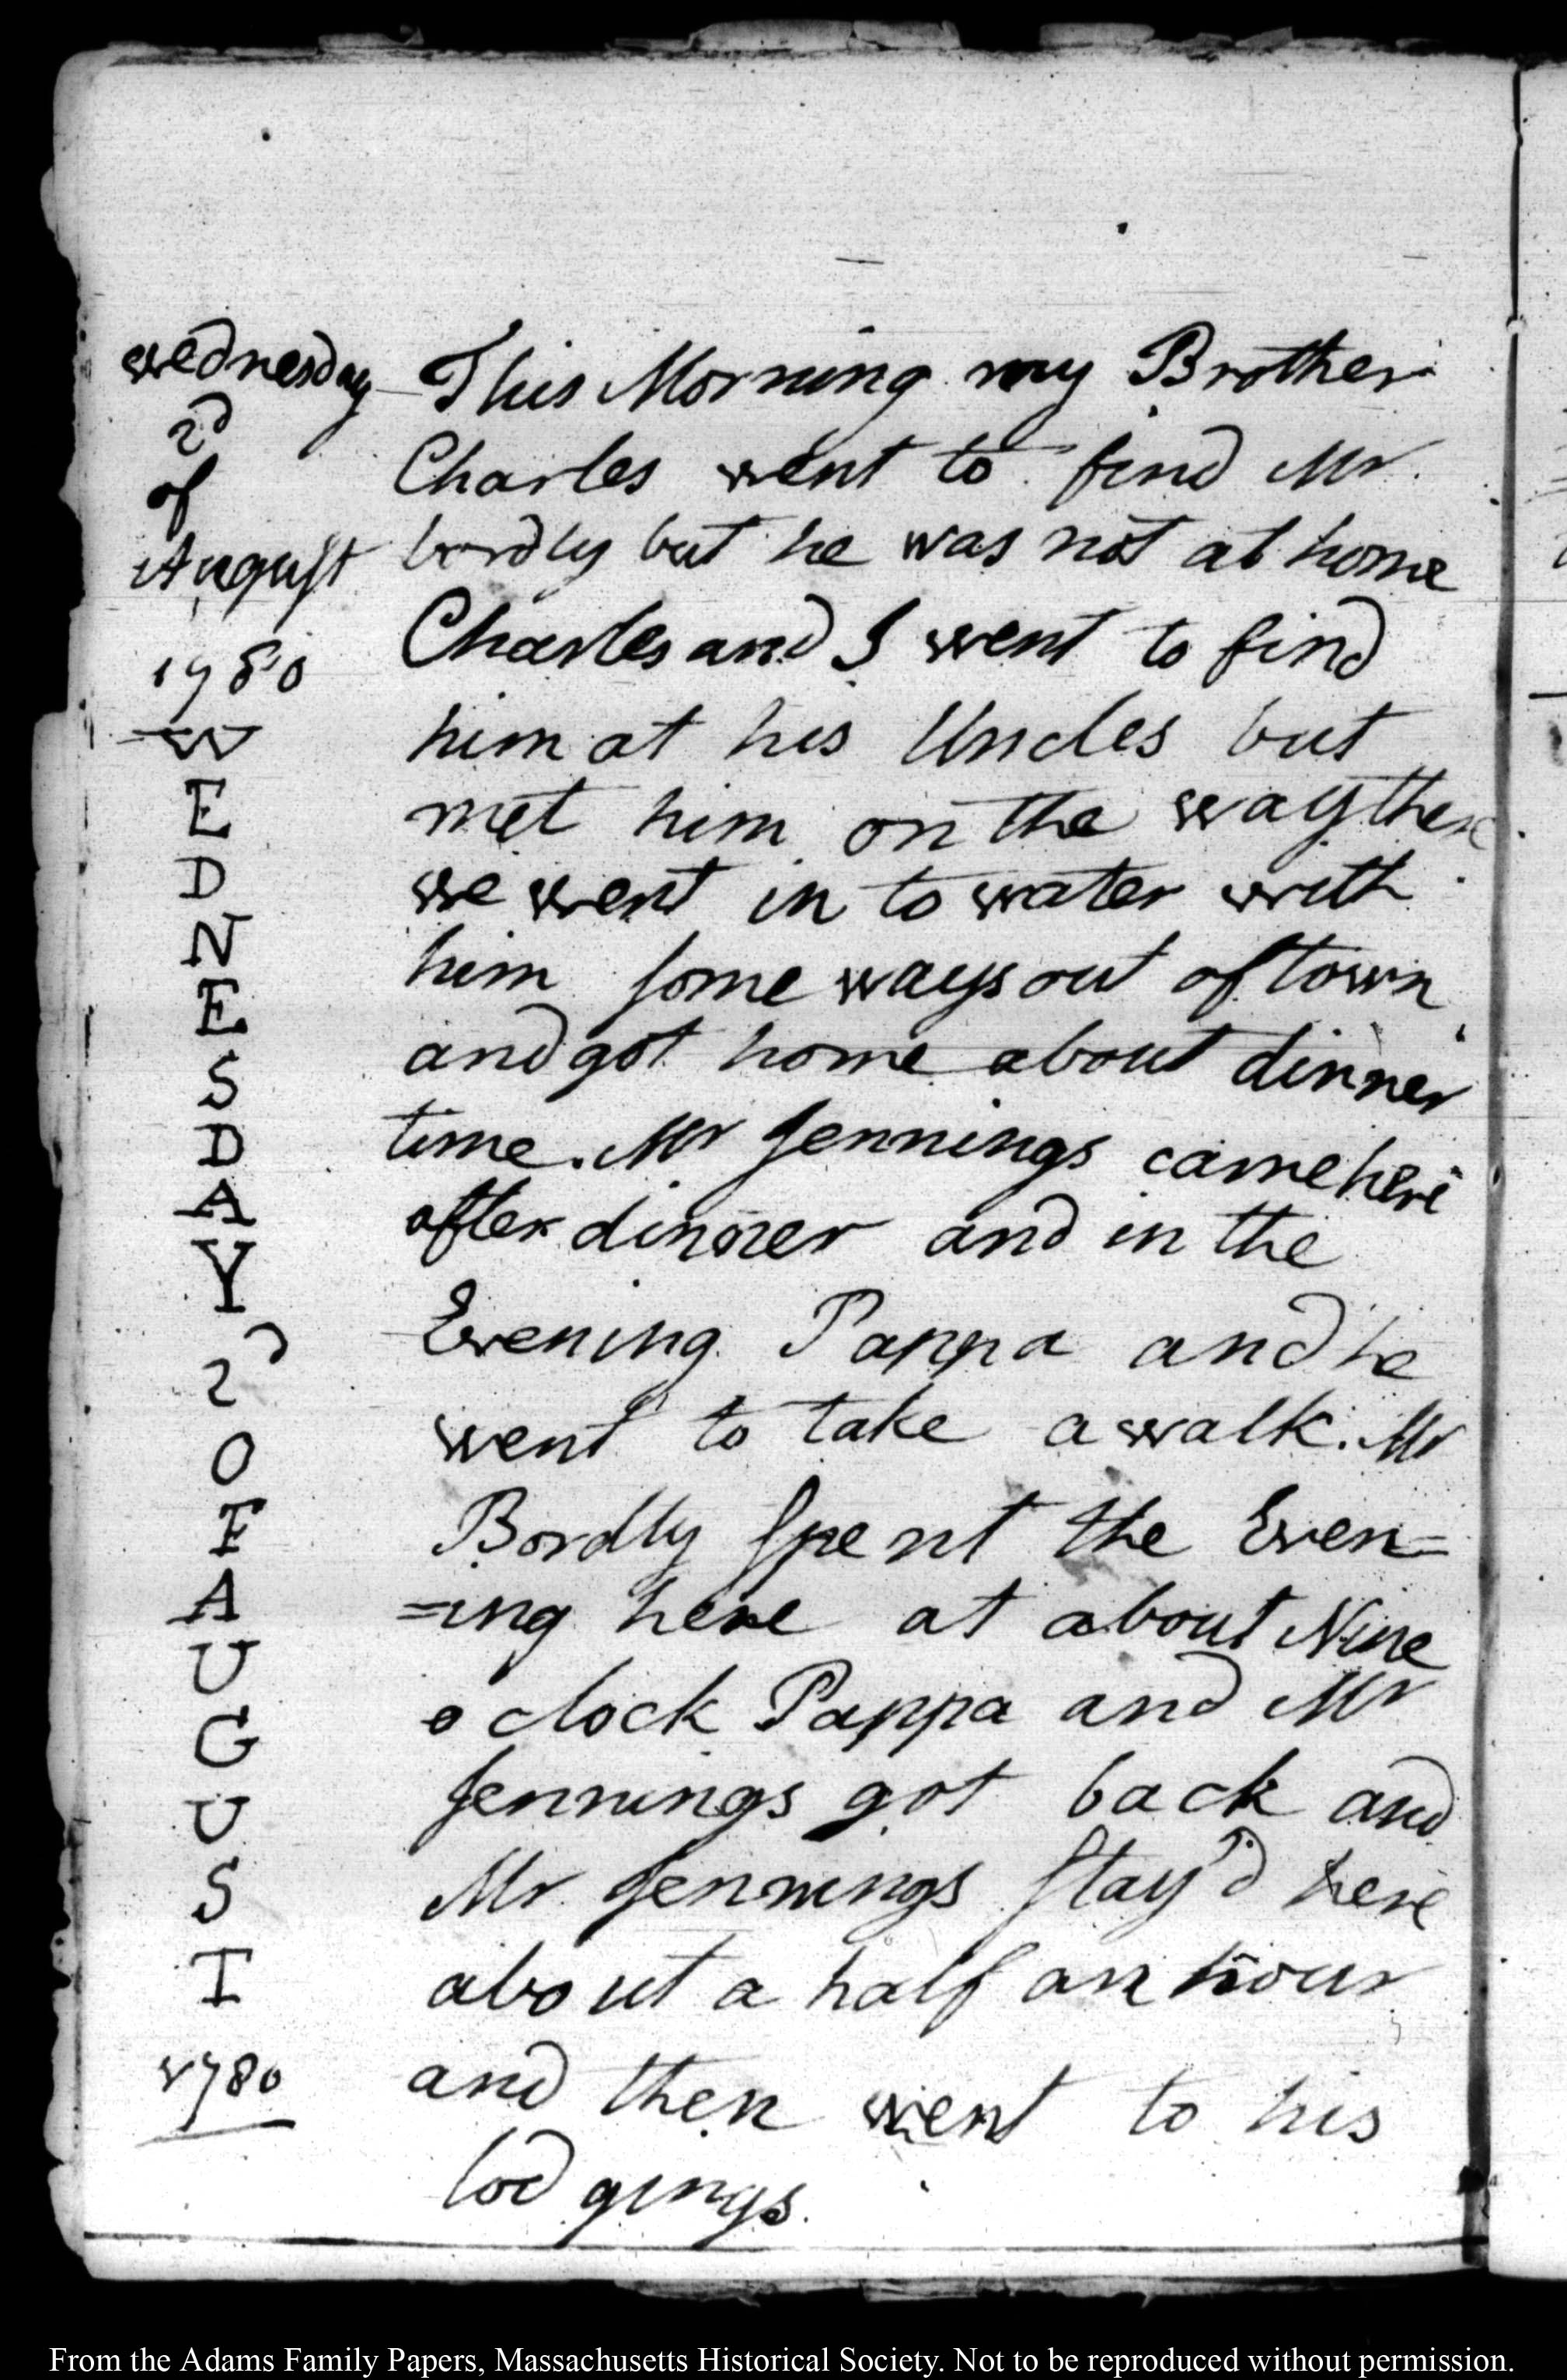 wednesday
2d
of
August
1780
W
E
D
N
E
S
D
A
Y
2d
O
F
A
U
G
U
S
T
1780
This Morning my Brother
Charles went to find Mr
bordly but he was not at home
Charles and I went to find
him at his Uncles but
met him on the way then
we went in to water with
him some ways out of town
and got home about dinner
time. Mr Jennings came here
after dinner and in the
Evening Pappa and he
went to take a walk. Mr
Bordly spent the Even=
=ing here at about Nine
o clock Pappa and Mr
Jennings got back and
Mr Jennings stay'd here
about a half an hour
and then went to his
lodgings.
From the Adams Family Papers, Massachusetts Historical Society. Not to be reproduced without permission.